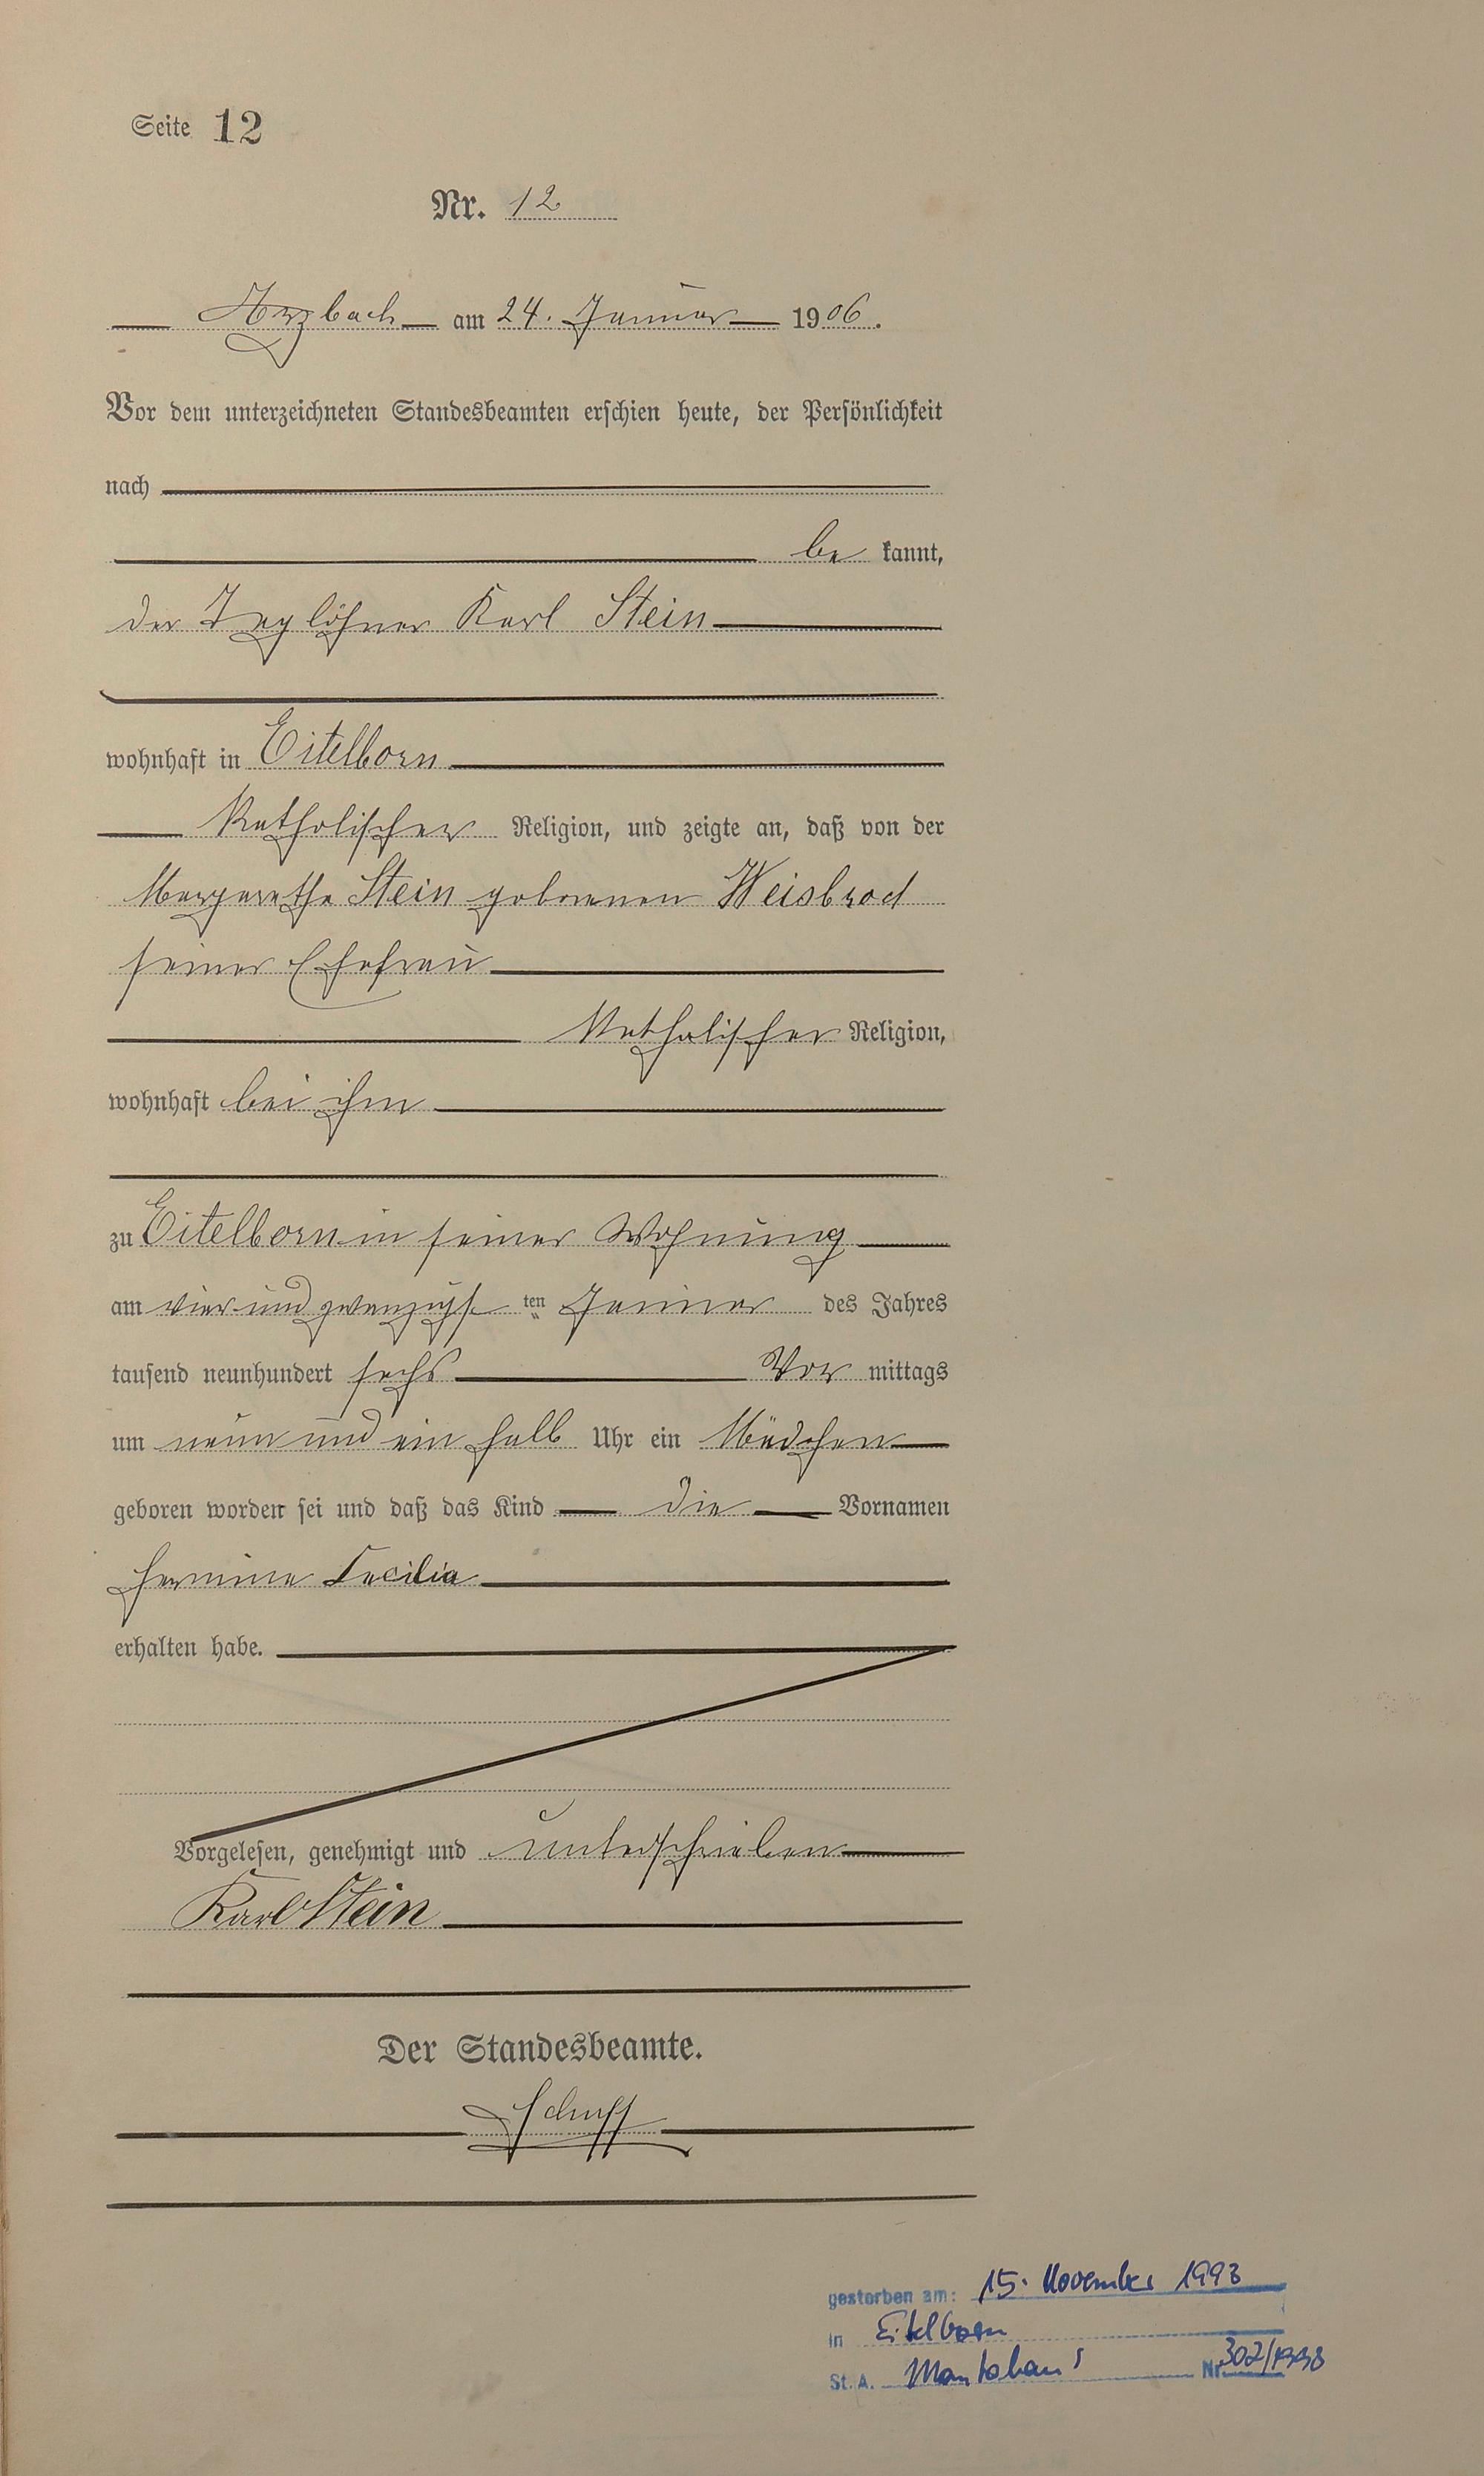 Seite 12
Nr. 12
Arzbach am 24. Januar 1906.
Vor dem unterzeichneten Standesbeamten erschien heute, der Persönlichkeit
nach
be kannt,
der Taglöhner Karl Stein
wohnhaft in Eitelborn
Katholischer Religion, und zeigte an, daß von der
Margarethe Stein geborenen Weisbrod
seiner Ehefrau
Katholischer Religion,
wohnhaft bei ihm
zu Eitelborn in seiner Wohnung
am vier und zwanzigsten Januar des Jahres
tausend neunhundert sechs Vor mittags
um neun und ein halb Uhr ein Mädchen
geboren worden sei und daß das Kind die Vornamen
Hermine Cecilia
erhalten habe.
Vorgelesen, genehmigt und unterschrieben
Karl Stein
Der Standesbeamte.
Schuff
gestorben am: 15. November 1993
in Eitelborn
St. A. Montabaur Nr.